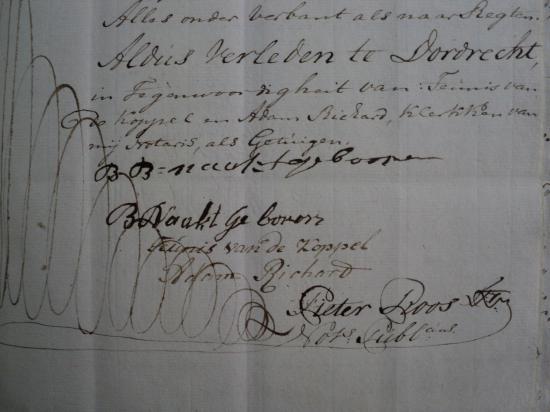 Alles onder verbant als naar Regten.
Aldus verleden te Dordrecht,
in Tegenwoordigheit van Teunis van
de Koppel en Adam Richard, Klerkken van
mij Notaris, als Getuigen.
B B= naaktgebooren
B Naakt Geboren
Teunis van de Koppel
Adam Richard
Pieter Roos
Nots. Publcus